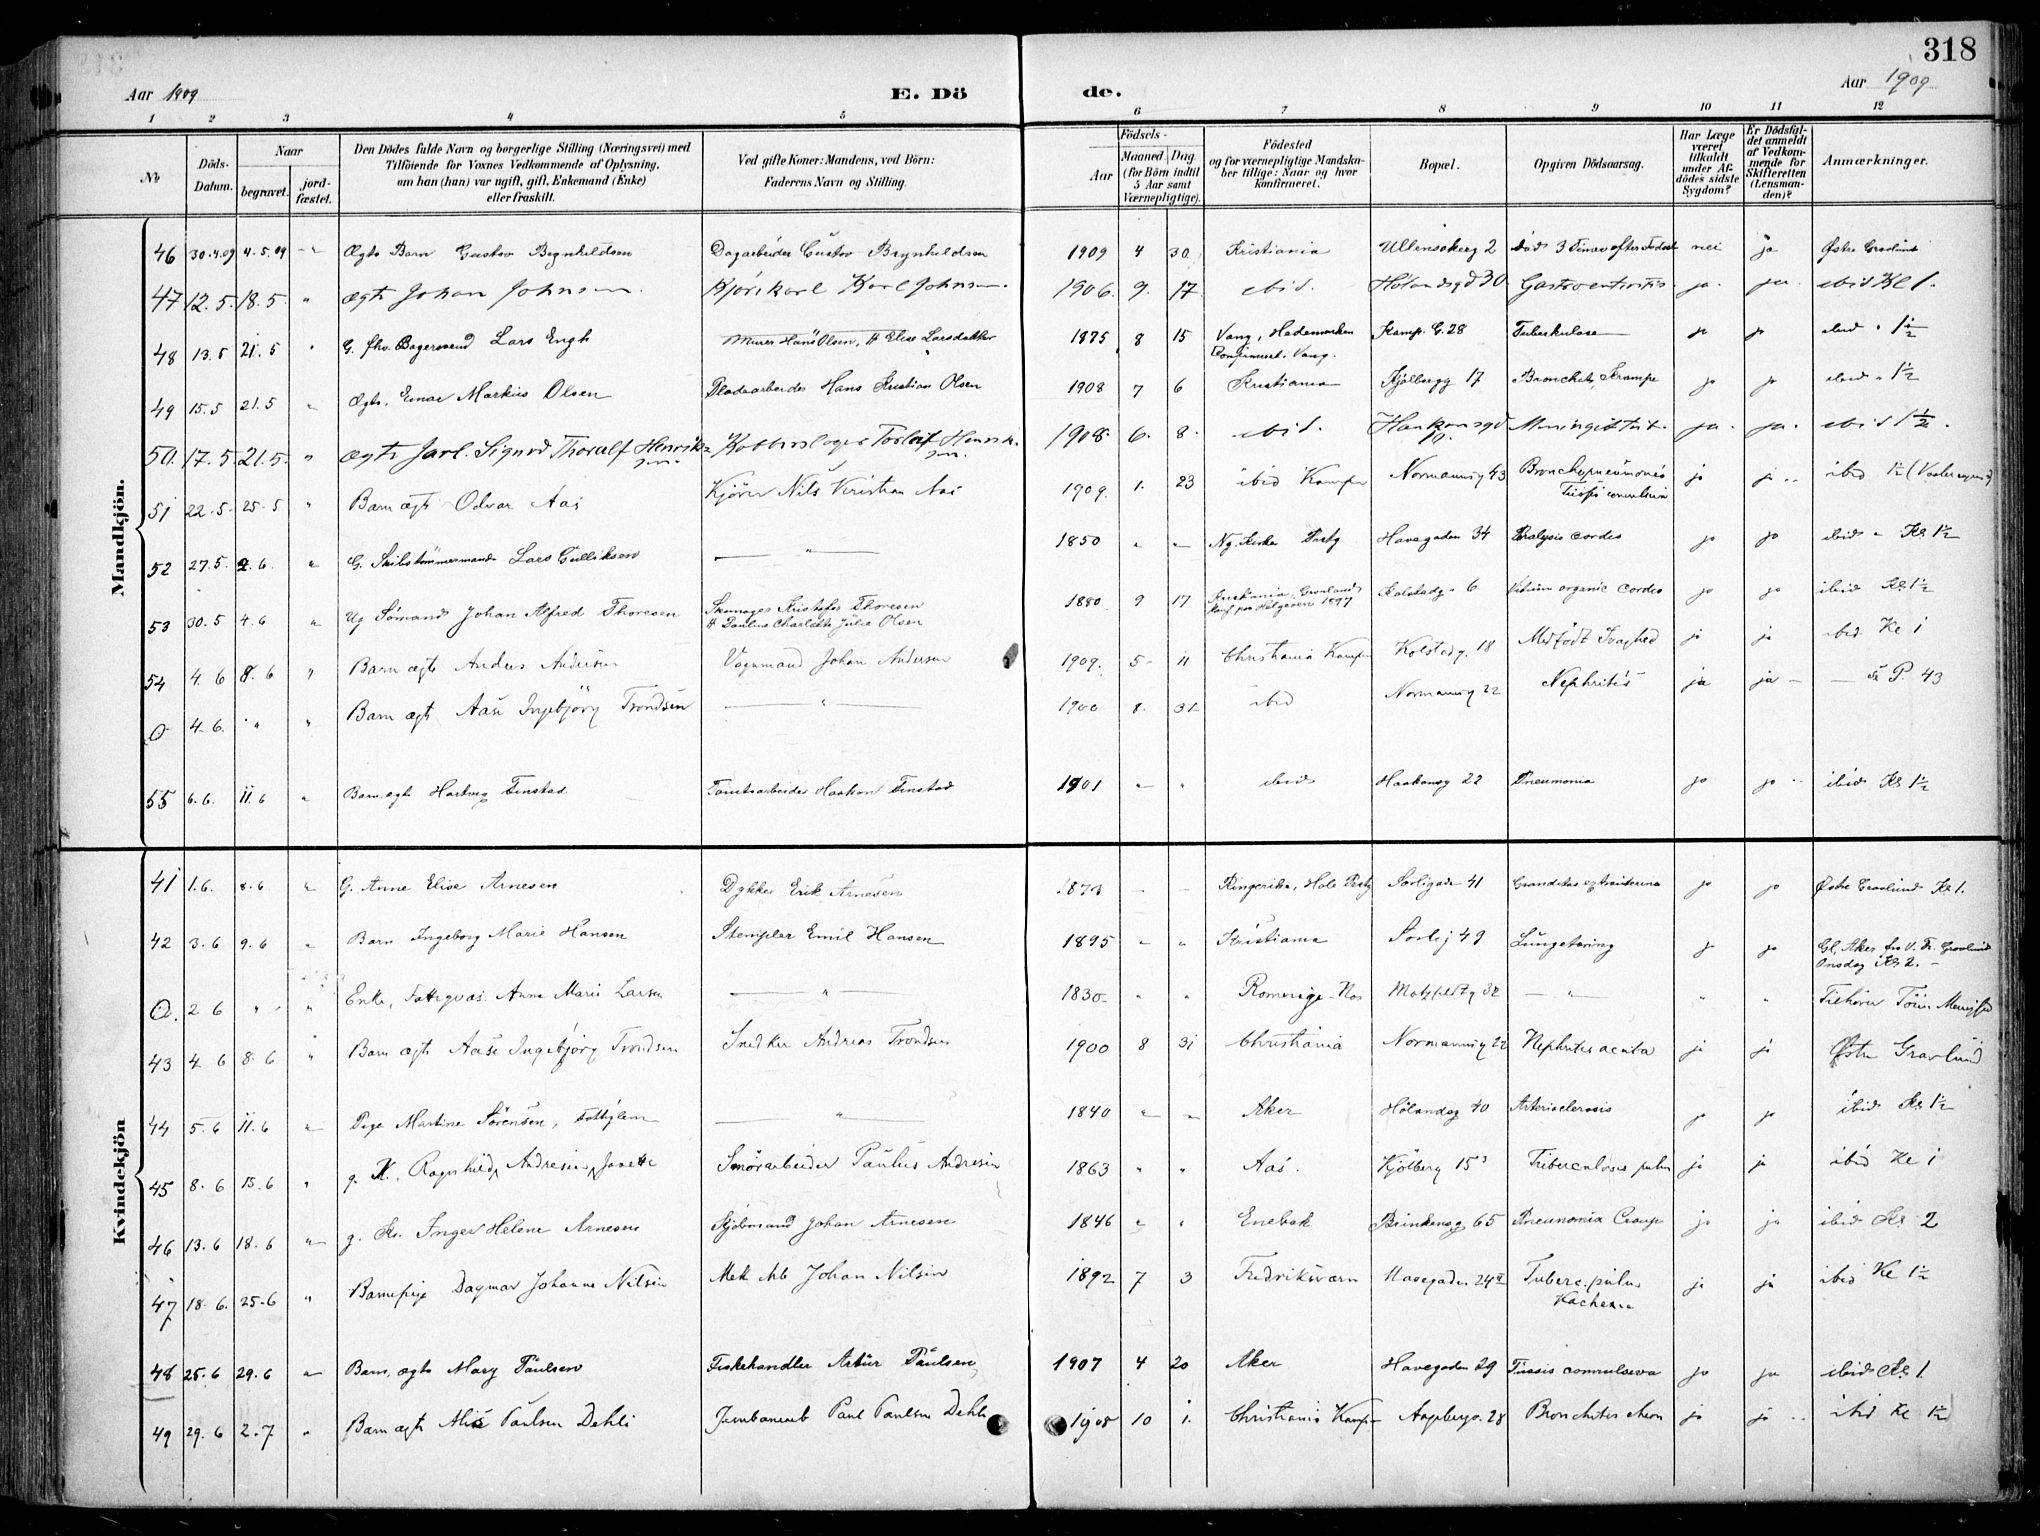 318
Aar 1909 E. Dö de. Aar 1909
1 2 3 4 5 6 7 8 9 10 11 12
№ Döds-Datum. Naar begravet. jord-fæstet. Den Dödes fulde Navn og borgerlige Stilling (Næringsvei) med Tilföiende for Voxnes Vedkommende af Oplysning, om han (hun) var ugift, gift, Enkemand (Enke) eller fraskilt. Ved gifte Koner: Mandens, ved Börn: Faderens Navn og Stilling. Födsels- Aar Maaned. Dag. (for Börn indtil 5 Aar samt Værnepligtige). Födested og for værnepligtige Mandskaber tillige: Naar og hvor Konfirmeret. Bopæl. Opgiven Dödsaarsag. Har Læge været tilkaldt under Afdödes sidste Sygdom? Er Dödsfaldet anmeldt af Vedkommende for Skifteretten (Lensmanden)? Anmærkninger.
Mandkjön.
46 30.4.09 4.5.09 " Ægte Barn Gustav Brynhildsen Dagarbeider Gustav Brynhildsen 1909 4 30. Kristiania Ullensakerg 2 Död 3 Timer efter Födsel nei ja Østre Gravlund
47 12.5. 18.5. " Ægte Johan Johnsen. Kjörekarl Karl Johnsen. 1906. 9. 17. ibid. Hölandsgd 30. Gastroenteritis ja. ja. ibid Kl 1.
48 13.5 21.5 " G. fhv. Bagersvend Lars Engh Murer Hans Olsen, H Elise Larsdatter 1875 8 15 Vang, Hedemarken Konfirmeret. Vang. Kamp. G. 28 Tuberkulose ja ja ibid " 1½
49 15.5 21.5 " Ægte. Einar Markus Olsen Pladsarbeider Hans Kristian Olsen 1908 7 6 Kristiania Kjölbergg 17 Bronchit, Krampe ja ja ibid " 1½
50. 17.5. 21.5. " Ægte Jarl. Sigurd Thoralf Henriksen. Kobberslager Torleif Henriksen. 1908. 6. 8. ibid. Haakonsgd Meningit tub. ja. ja. ibid 1½.
51 22.5. 25.5 " Barn ægte Odvar Aas Kjörer Nils Kristian Aas 1909. 1. 23 ibid Kampen Normannsg 43 Bronchopneumonia Tussis convulsiva ja ja "
52 27.5. 2.6. " G. Skibstömmermand Lars Gulliksen — " — 1850 " " Paralysis cordis Havegaden 34 ja ja ibid " Kl 1½
53 30.5 4.6 " Ug Sömand Johan Alfred Thoresen Kristofer Thoresen H Pauline Charlotte Julie Olsen 1880 9 17 Kristiania, Grönland 1897 Kolstadg. 6 Vitium organic cordis ja ja ibid Kl. 1½
54 4.6 8.6 " Barn ægte Anders Andersen Vognmand Johan Andersen 1909. 5 11 Christiania Kampen Kolstadg. 18 Medfödt Svaghed ja ja ibid Kl 1
O 4.6. " " Barn ægte Aase Ingebjörg Trondsen — " — 1900 8. 31 ibid Normannsg 22 Nephritis ja ja — P. 43
55 6.6. 11.6 " Barn. ægte Hartvig Finstad Tomtearbeider Haakon Finstad 1901 " " ibid Haakonsg 22 Pneumonia ja ja ibid Kl 1½
Kvindekjön
41 1.6. 8.6 " G. Anne Elise Arnesen Dykker Erik Arnesen 1873 - - Ringerike, Hole Prstg Sorligade 41 ja ja Østre Gravlund Kl 1.
42 3.6 9.6 " Barn Ingeborg Marie Hansen Stempler Emil Hansen 1895 " " Kristiania Sorlig 49 Lungetæring ja ja Gl. Aker fra V. Gravlund Onsdag Kl 2. -
O. 2 6 " " Enke, Fattigvæs. Anne Marie Larsen — " — 1830 " " Romerige Nes Motzfeldtg 32 — " — " "
43 4 6 8.6 " Barn ægte Aase Ingebjörg Trondsen Snedker Andreas Trondsen 1900 8 31 Christiania Normannsg 22 Nephritis acuta ja ja Østre Gravlund
44 5.6 11.6 " Pige Martine Sörensen, Fattiglem — " — 1840 " " Aker Hölandsg 40 Arteriosclerosis ja ja ibid Kl 1½
45 8.6 15.6 " g. K. Ragnhild Andresen, Janette Smörarbeider Paulus Andresen 1863 " " Aas. Kjölberg 15³ Tuberculosis pulm ja ja ibid Kl 1
46 13.6 18.6 " g. K. Inger Helene Arnesen Johan Arnesen 1846 " " Enebak Brinkensg 65 Pneumonia Croup ja ja ibid Kl 2
47 18.6. 25.6 " Barnepige Dagmar Johanne Nilsen Mek Arb Johan Nilsen 1892 7 3 Fredriksværn Havegaden 24 II Tuberc. pulm Kachexia ja ja ibid Kl 1½
48 25.6 29.6 " Barn, ægte Mary Paulsen Fiskehandler Artur Paulsen 1907 4 20 Aker Havegaden 29 Tussis convulsiva ja ja ibid Kl 1
49 29.6 2.7 " Barn ægte Alis Paulsen Dehli Jernbanearb Paul Paulsen Dehli 1908 10 1. Christiania Kampen Aagebergv. 28 Bronchitis ja ja ibid Kl 1½